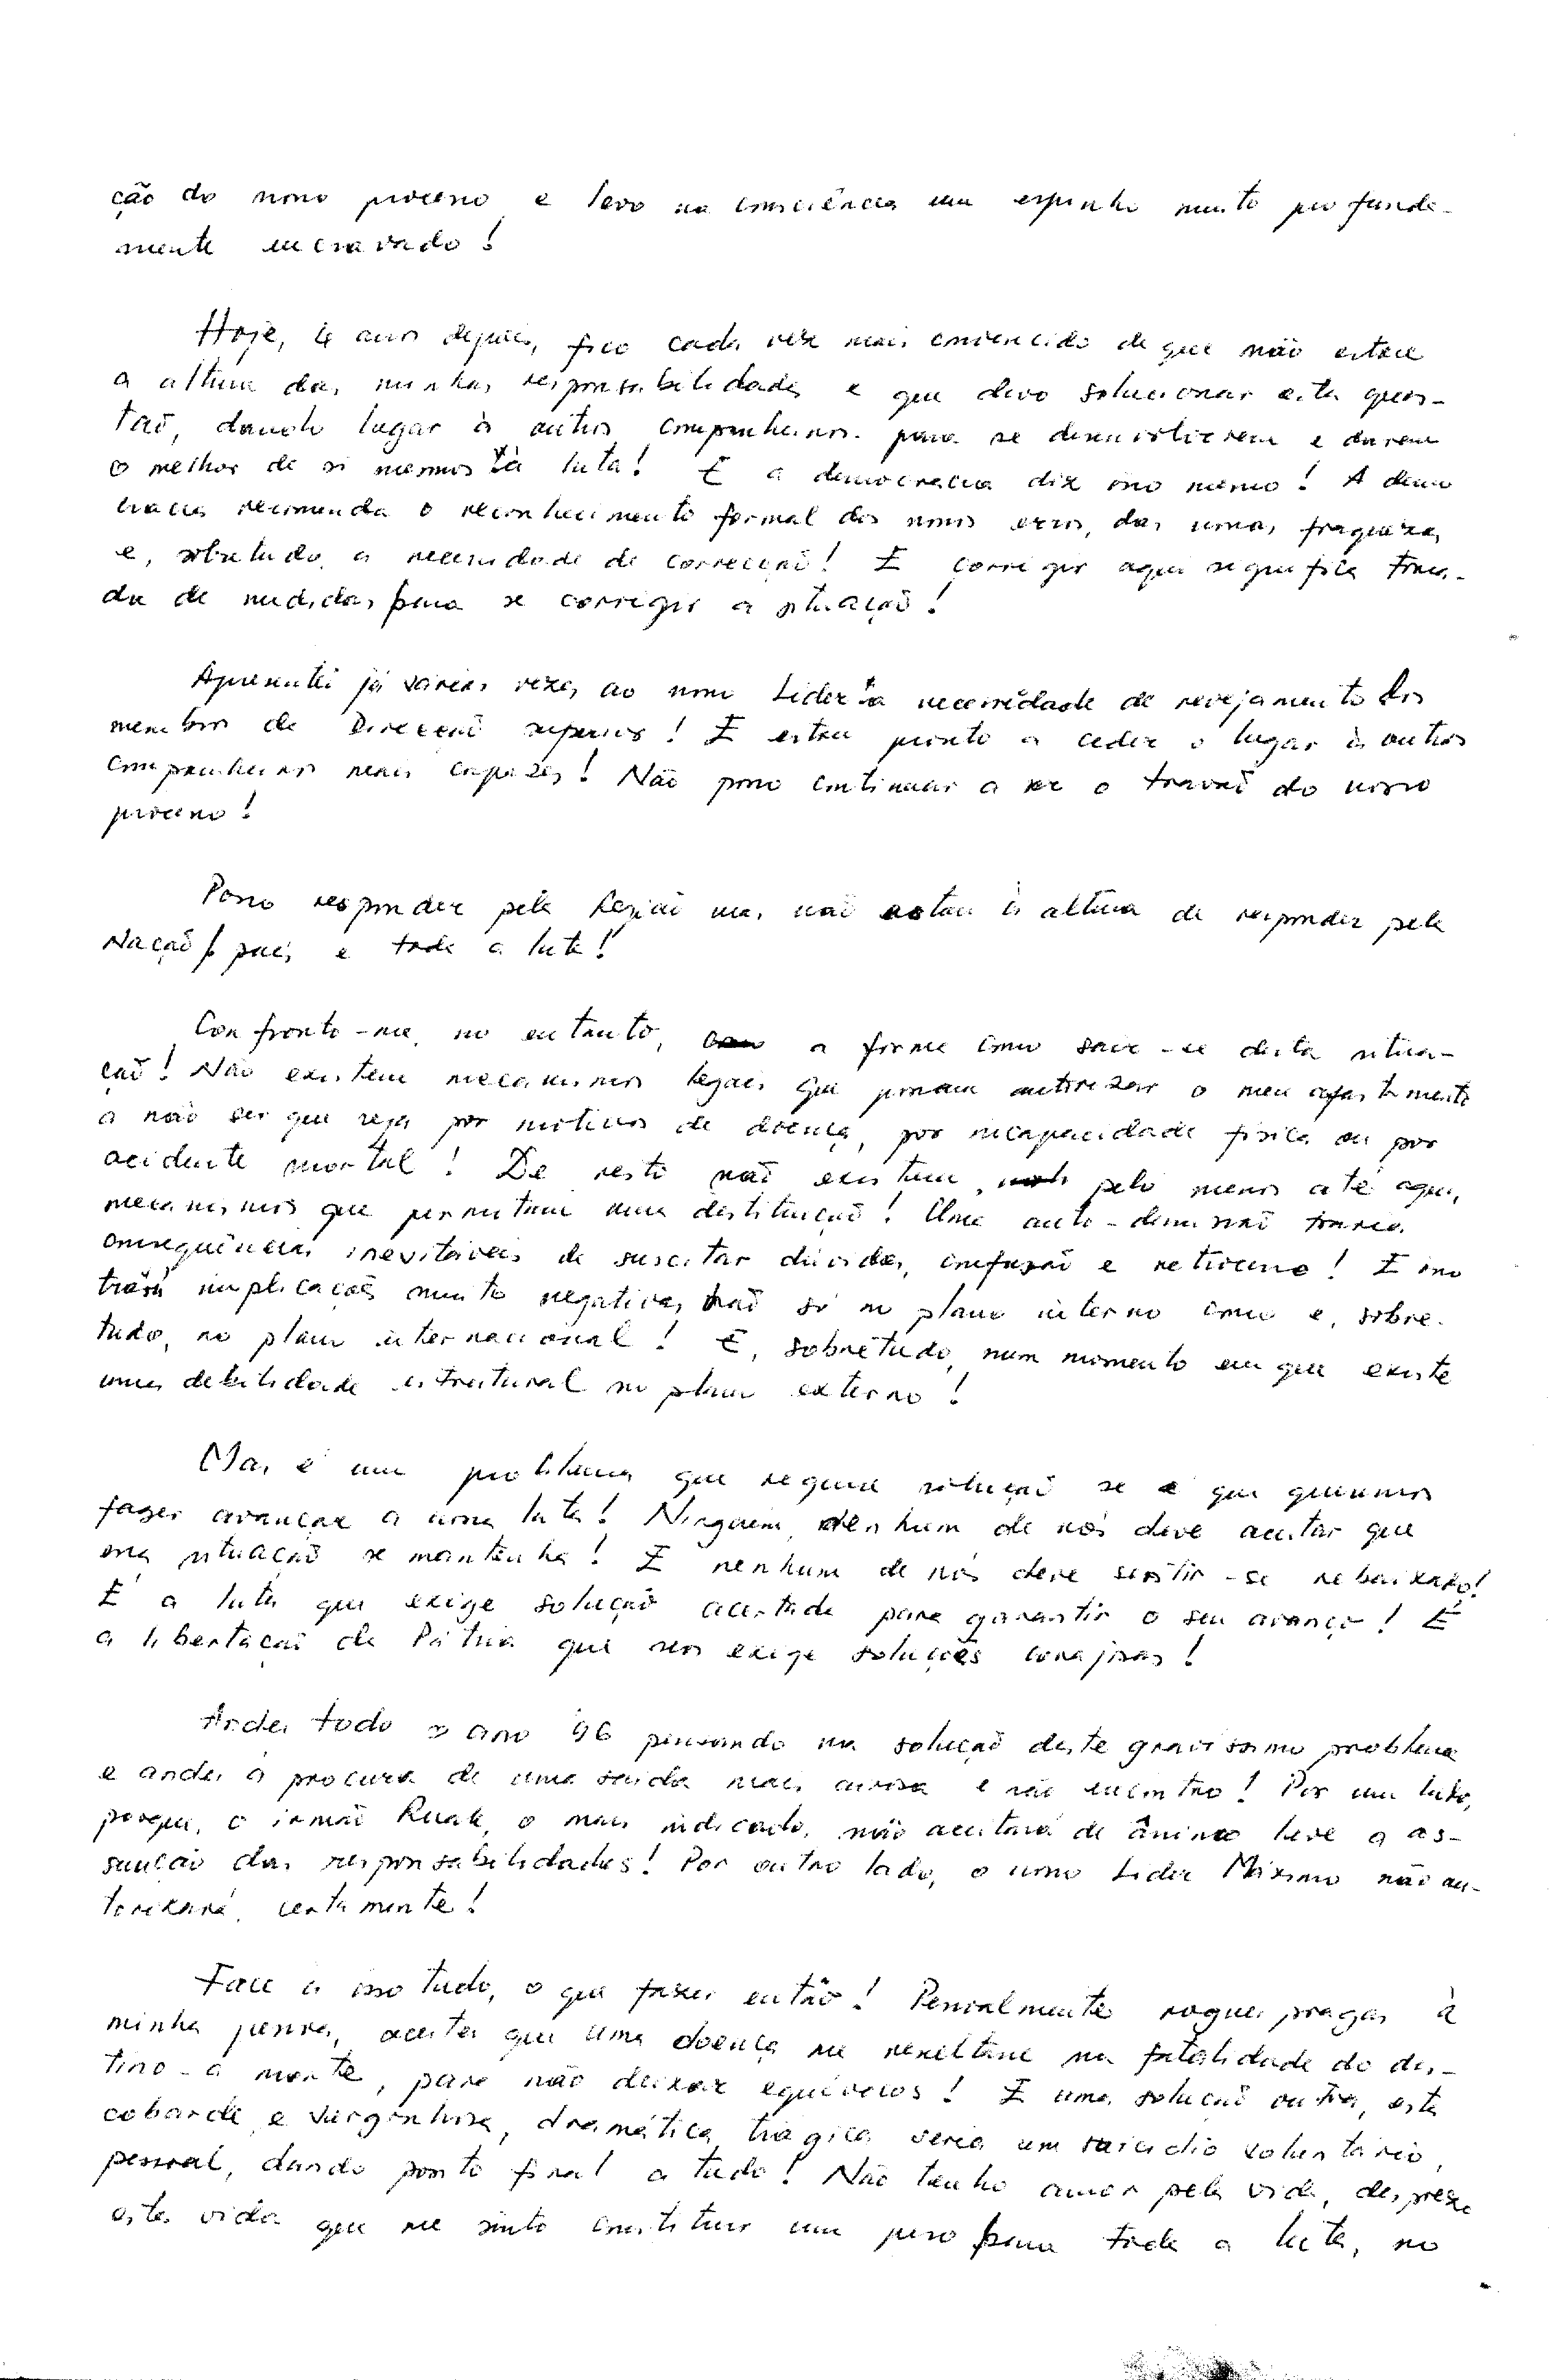 ção do nosso processo e levo na consciência um espinho muito profunda-
mente encravado!
Hoje, 4 anos depois, fico cada vez mais convencido de que não estou
a altura das minhas responsabilidades e que devo solucionar esta ques-
tão, dando lugar à outros companheiros para se desenvolverem e darem
o melhor de si mesmos à luta! E a democracia diz isso mesmo! A demo
cracia recomenda o reconhecimento formal dos nossos erros, das nossas fraquezas
e, sobretudo, a necessidade de correcção! E corrigir aqui significa toma-
da de medidas para se corrigir a situação!
Apresentei já várias vezes ao nosso Líder a necessidade de revejamento dos
membros da Direcção superior! E estou pronto a ceder o lugar à outros
companheiros mais capazes! Não posso continuar a ser o travão do nosso
processo!
Posso responder pela Região mas não estou à altura de responder pela
Nação, país e toda a luta!
Confronto-me, no entanto, a forma como sair-se desta situa-
ção! Não existem mecanismos legais que possam autorizar o meu afastamento
a não ser que seja por motivos de doença, por incapacidade física ou por
acidente mortal! De resto não existem, pelo menos até aqui,
mecanismos que permitam uma destituição! Uma auto-demissão traria
consequências inevitáveis de suscitar dúvidas, confusão e retrocesso! E isso
trará implicações muito negativas não só no plano interno como e, sobre-
tudo, no plano internacional! E, sobretudo, num momento em que existe
uma debilidade estrutural no plano externo!
Mas é um problema que requer solução se é que queremos
fazer avançar a nossa luta! Ninguém, nenhum de nós deve aceitar que
essa situação se mantenha! E nenhum de nós deve sentir-se rebaixado!
É a luta que exige solução acertada para garantir o seu avanço! É
a libertação da Pátria que nos exige soluções corajosas!
Andei todo o ano 96 pensando na solução deste gravíssimo problema
e andei à procura de uma saída mais airosa e não encontro! Por um lado,
porque, o irmão Ruak, o mais indicado, não aceitará de ânimo leve a as-
sunção das responsabilidades! Por outro lado, o nosso Líder Máximo não au-
torizará, certamente!
Face a isso tudo, o que fazer então! Pessoalmente roguei pragas à
minha pessoa, aceitei que uma doença me resultasse na fatalidade do des-
tino - a morte, para não deixar equívocos! E uma solução outra, esta
cobarde e vergonhosa, dramática, trágica seria um suicídio voluntário,
pessoal, dando ponto final a tudo! Não tenho amor pela vida, desprezo
esta vida que me sinto constituir um peso para toda a luta, no